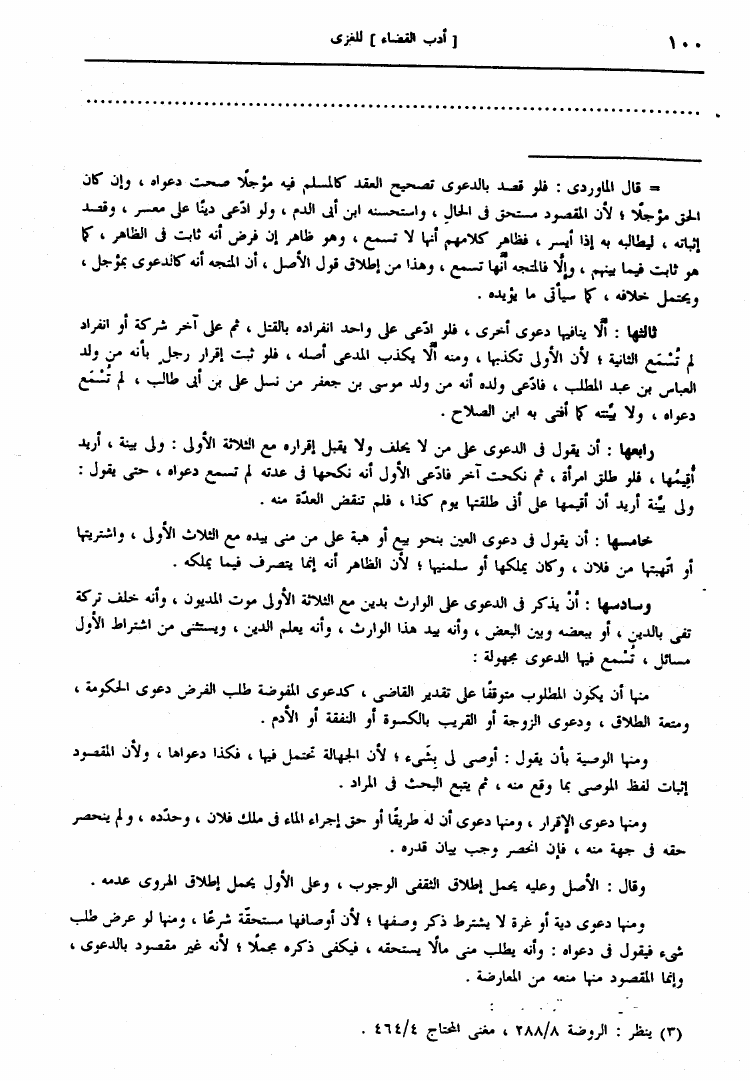 ١٠٠
[ أدب القضاء ] للغزى
= قال الماوردى : فلو قصد بالدعوى تصحيح العقد كالمسلم فيه مؤجلًا صحت دعواه ، وإن كان
الحق مؤجلًا ؛ لأن المقصود مستحق فى الحال ، واستحسنه ابن أبى الدم ، ولو ادّعى دينًا على معسر ، وقصد
إثباته ، ليطالبه به إذا أيسر ، فظاهر كلامهم أنها لا تسمع ، وهو ظاهر إن فرض أنه ثابت فى الظاهر ، كما
هو ثابت فيما بينهم ، وإلَّا فالمتجه أنَّها تسمع ، وهذا من إطلاق قول الأصل ، أن المتجه أنه كالدعوى بمؤجل ،
ويحتمل خلافه ، كما سيأتى ما يؤيده .
ثالثها : ألَّا ينافيها دعوى أخرى ، فلو ادّعى على واحد انفراده بالقتل ، ثم على آخر شركة أو انفراد
لم تُسْمَع الثانية ؛ لأن الأولى تكذبها ، ومنه ألَّا يكذب المدعى أصله ، فلو ثبت إقرار رجل بأنه من ولد
العباس بن عبد المطلب ، فادّعى ولده أنه من ولد موسى بن جعفر من نسل على بن أبى طالب ، لم تُسْمَع
دعواه ، ولا بيِّنته كما أفتى به ابن الصلاح .
رابعها : أن يقول فى الدعوى على من لا يحلف ولا يقبل إقراره مع الثلاثة الأولى : ولى بينة ، أريد
أُقِيمُها ، فلو طلق امرأة ، ثم نكحت آخر فادّعى الأول أنه نكحها فى عدته لم تسمع دعواه ، حتى يقول :
ولى بيِّنة أريد أن أقيمها على أنى طلقتها يوم كذا ، فلم تنقض العدّة منه .
خامسها : أن يقول فى دعوى العين بنحو بيع أو هبة على من منى بيده مع الثلاث الأولى ، واشتريتها
أو اتّهبتها من فلان ، وكان يملكها أو سلمنيها ؛ لأن الظاهر أنه إنما يتصرف فيما يملكه .
وسادسها : أنْ يذكر فى الدعوى على الوارث بدين مع الثلاثة الأولى موت المديون ، وأنه خلف تركة
تفى بالدين ، أو ببعضه وبين البعض ، وأنه بيد هذا الوارث ، وأنه يعلم الدين ، ويستثنى من اشتراط الأول
مسائل ، تُسْمع فيها الدعوى مجهولة :
منها أن يكون المطلوب متوقفًا على تقدير القاضى ، كدعوى المفوضة طلب الفرض دعوى الحكومة ،
ومتعة الطلاق ، ودعوى الزوجة أو القريب بالكسوة أو النفقة أو الأدم .
ومنها الوصية بأن يقول : أوصى لى بِشَىء ؛ لأن الجهالة تحتمل فيها ، فكذا دعواها ، ولأن المقصود
إثبات لفظ الموصى بما وقع منه ، ثم يتبع البحث فى المراد .
ومنها دعوى الإقرار ، ومنها دعوى أن له طريقًا أو حق إجراء الماء فى ملك فلان ، وحدّده ، ولم ينحصر
حقه فى جهة منه ، فإن انحصر وجب بيان قدره .
وقال : الأصل وعليه يحمل إطلاق الثقفى الوجوب ، وعلى الأول يحمل إطلاق الهروى عدمه .
ومنها دعوى دية أو غرة لا يشترط ذكر وصفها ؛ لأن أوصافها مستحقّة شرعًا ، ومنها لو عرض طلب
شىء فيقول فى دعواه : وأنه يطلب منى مالًا يستحقه ، فيكفى ذكره مجملًا ؛ لأنه غير مقصود بالدعوى ،
وإنما المقصود منها منعه من المعارضة .
(٣) ينظر : الروضة ٢٨٨/٨ ، مغنى المحتاج ٤٦٤/٤ .